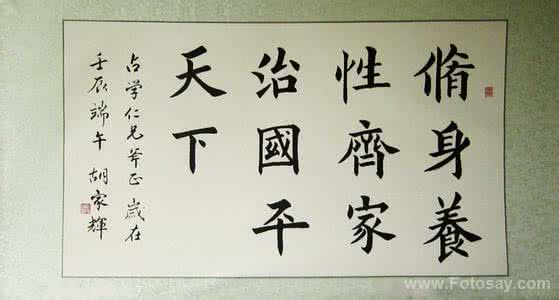 脩身養
性齊家
治國平
天下
占学仁兄斧正歲在
壬辰端午 胡家輝
www.Fotosay.com